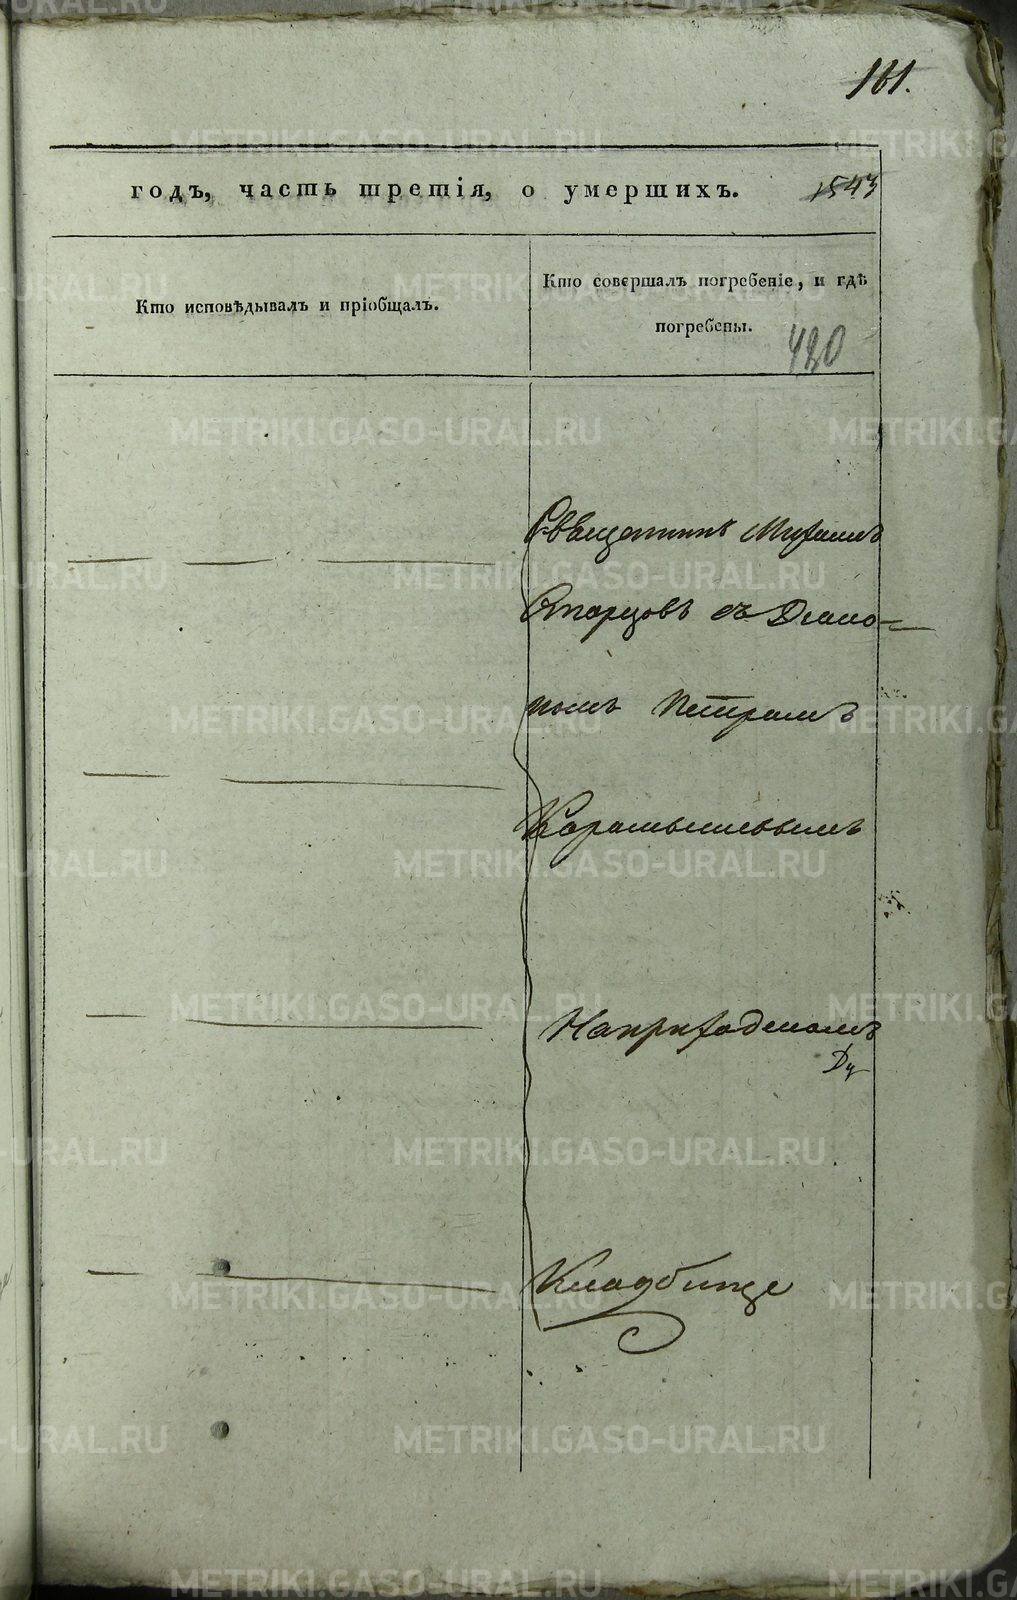 161.
годъ, часть третія, о умершихъ. 1543
Кто исповѣдывалъ и пріобщалъ.
Кто совершалъ погребеніе, и гдѣ
погребены.
480
Священникъ Михаилъ
Старцовъ съ Діако-
номъ Петромъ
Карамышевымъ
На приходскомъ
Кладбище
METRIKI.GASO-URAL.RU